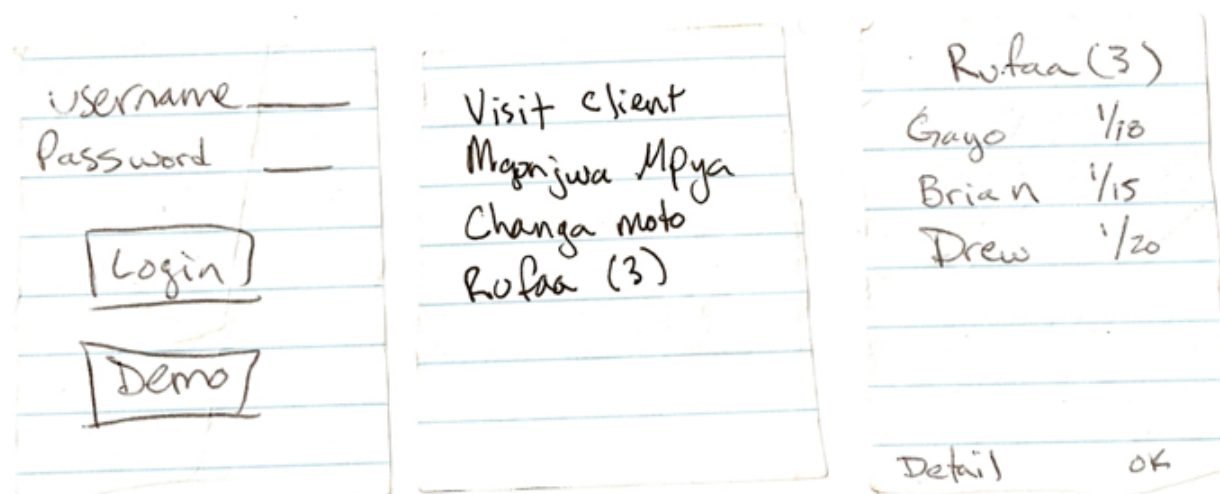 username
Password
Login
Demo
Visit Client
Mgonjwa Mpya
Changa moto
Rufaa (3)
Rufaa (3)
Gayo 1/18
Brian 1/15
Drew 1/20
Detail OK